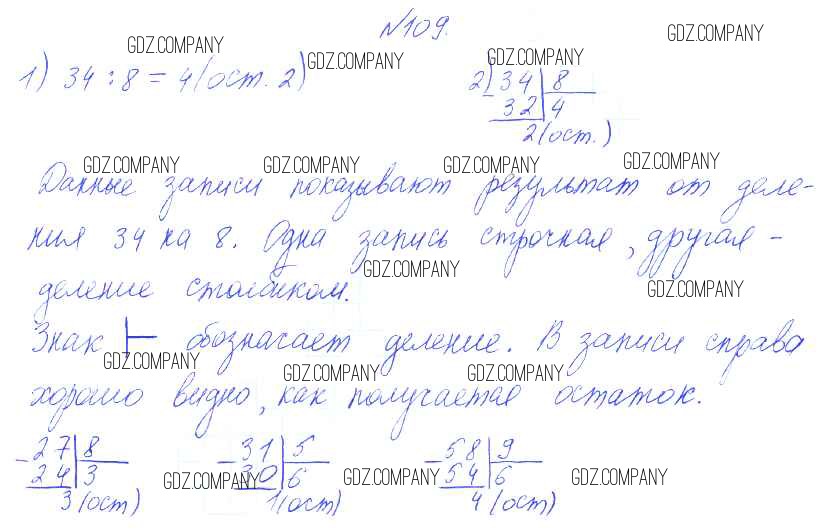 №109.
GDZ.COMPANY GDZ.COMPANY GDZ.COMPANY GDZ.COMPANY
1) 34 : 8 = 4 (ост. 2) 2) 34 8
- 32 4
2 (ост.)
GDZ.COMPANY GDZ.COMPANY GDZ.COMPANY GDZ.COMPANY
Данные записи показывают результат от деле-
ния 34 на 8. Одна запись строчная, другая -
GDZ.COMPANY GDZ.COMPANY
деление столбиком.
Знак обозначает деление. В записи справа
GDZ.COMPANY GDZ.COMPANY GDZ.COMPANY
хорошо видно, как получается остаток.
- 27 8 - 31 5 - 58 9
24 3 30 6 54 6
GDZ.COMPANY GDZ.COMPANY GDZ.COMPANY
3 (ост) 1 (ост) 4 (ост)